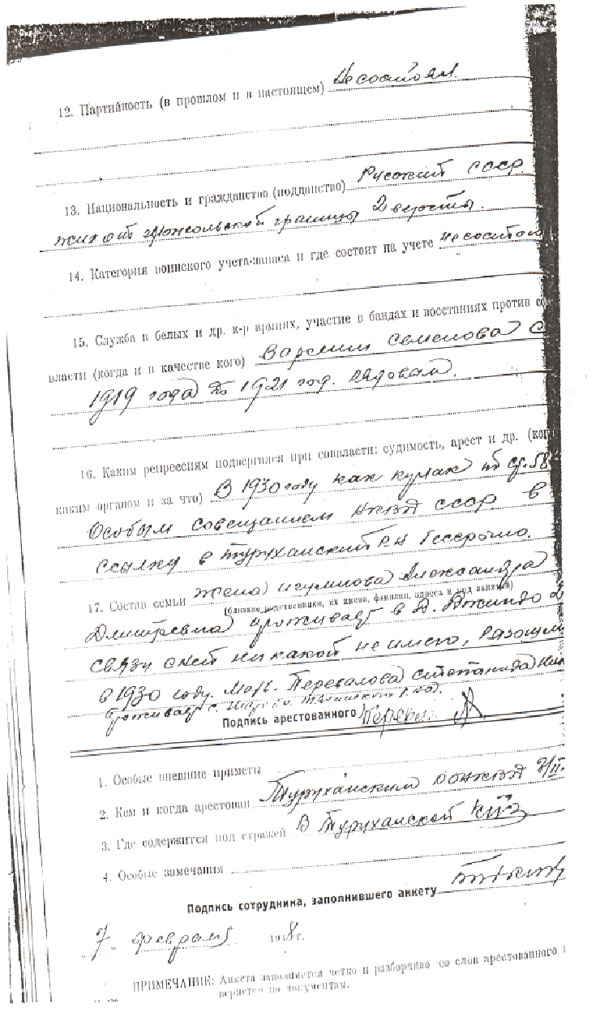 12. Партийность (в прошлом и в настоящем) Не состоял.
13. Национальность и гражданство (подданство) Русский СССР.
жил от границы 2 версты.
14. Категория воинского учета-запаса и где состоит на учете не состоит
15. Служба в белых и др. к-р армиях, участие в бандах и восстаниях против со
власти (когда и в качестве кого) В армии Семенова с
1919 года до 1921 год. рядовым.
16. Каким репрессиям подвергался при соввласти: судимость, арест и др. (ког
каким органом и за что) В 1930 году как кулак по ст. 58
Особым совещанием НКВД СССР в
ссылку в Туруханский р-н бессрочно.
17. Состав семьи жена Игумнова Александра
(близкие родственники, их имена, фамилии, адреса и род занятий)
Дмитревна проживает в д.
связи с ней ни какой не имею,
в 1930 году. Перевалова Степанида
проживает с.
Подпись арестованного Перев
1. Особые внешние приметы
2. Кем и когда арестован Туруханским РО НКВД
3. Где содержится под стражей В Туруханской КПЗ
4. Особые замечания
Подпись сотрудника, заполнившего анкету
"7" февраля 1938 г.
ПРИМЕЧАНИЕ: Анкета заполняется четко и разборчиво со слов арестованного и
веряется по документам.